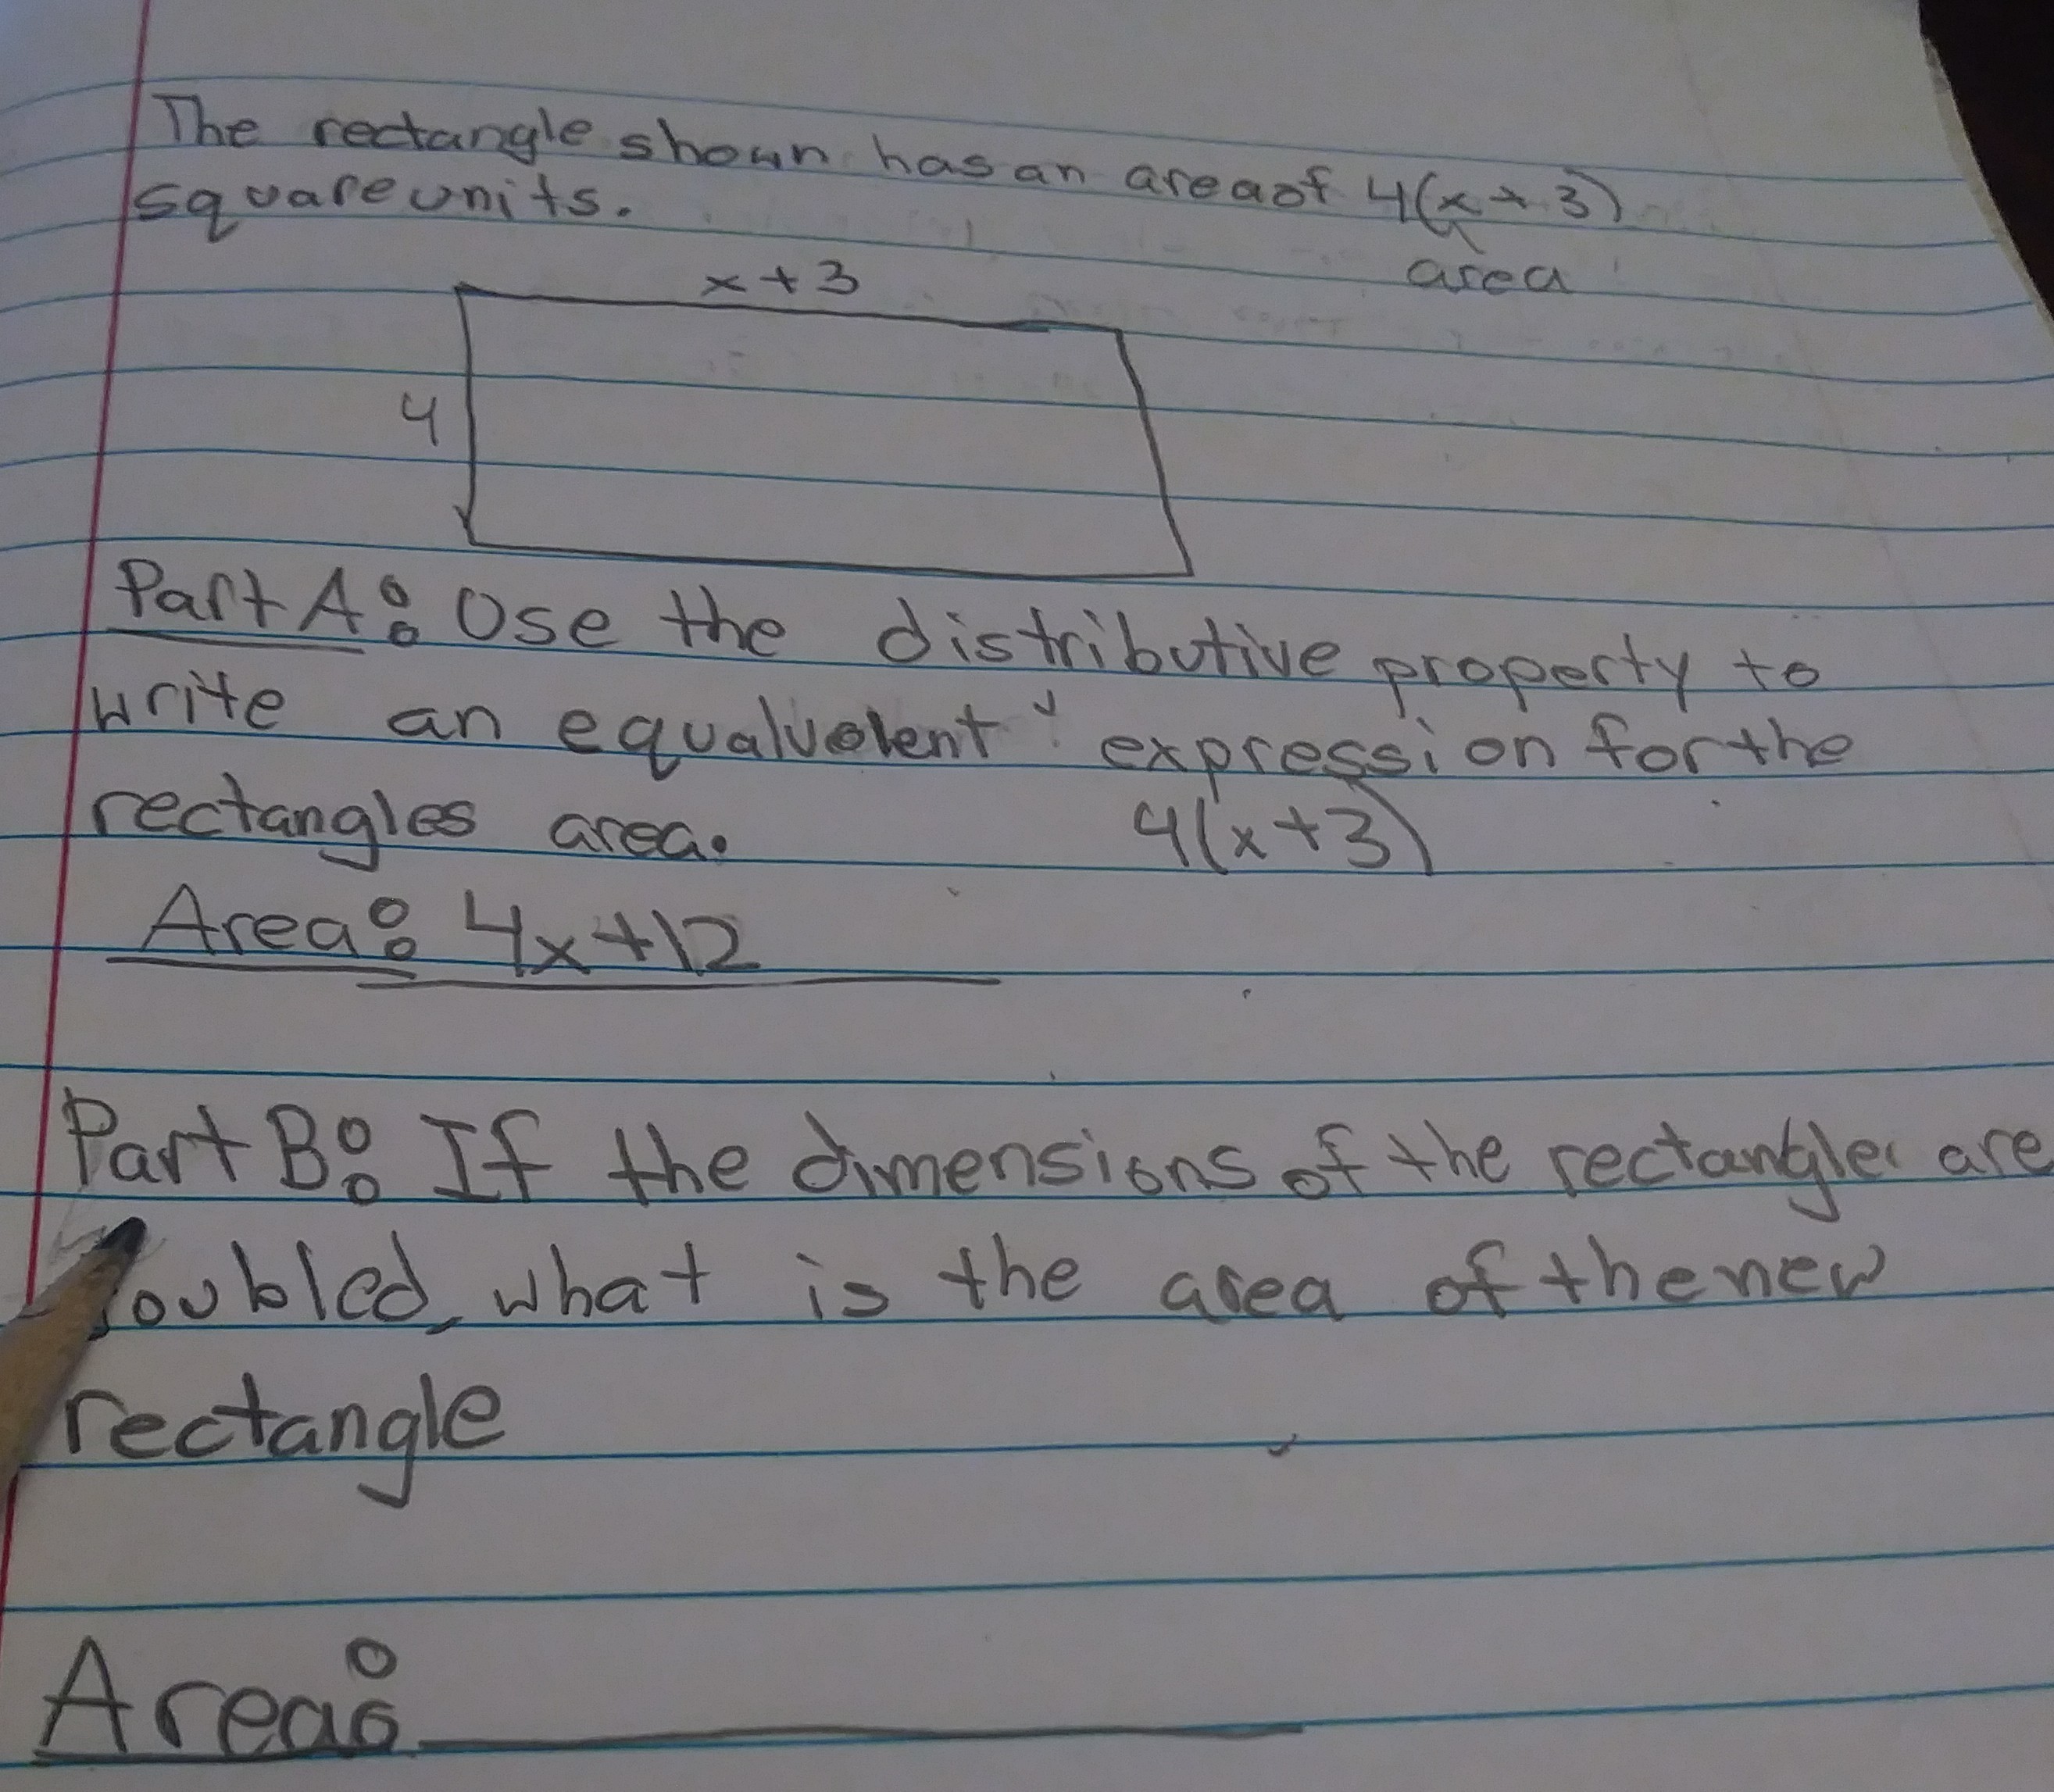 The rectangle shown has an area of 4(x+3)
square units.
area
x+3
4
Part A: Use the distributive property to
write an equalvelent expression for the
rectangles area.
4(x+3)
Area: 4x+12
Part B: If the dimensions of the rectangle are
oubled, what is the area of the new
rectangle
Area: